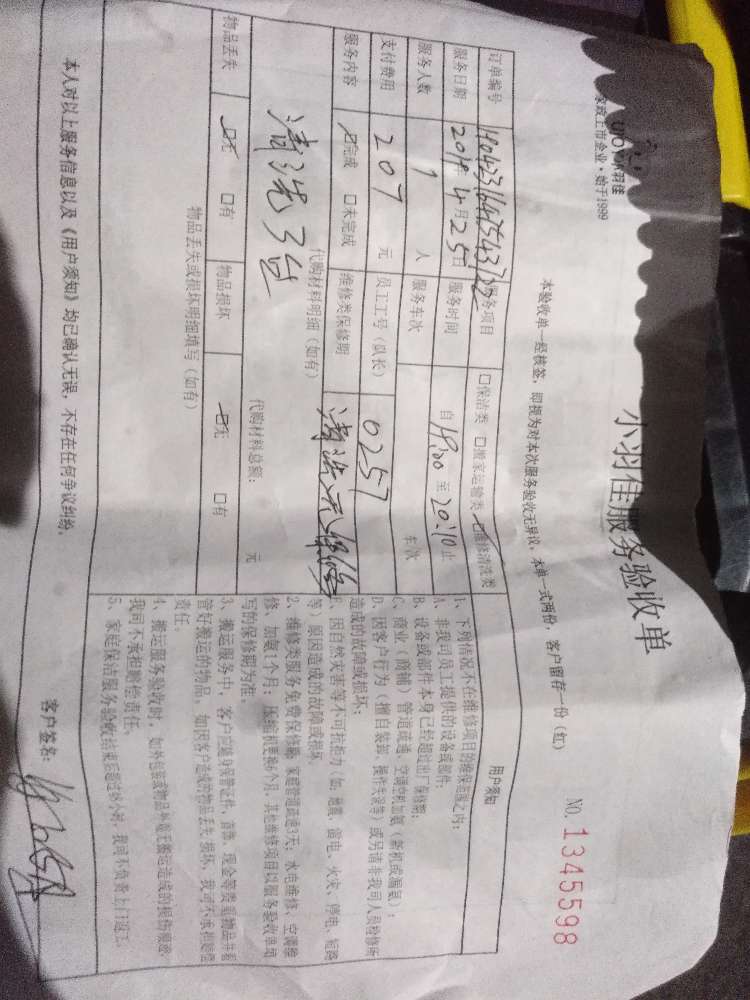 羽佳
家政上市企业·始于1999
小羽佳服务验收单
本验收单一经核签，即视为对本次服务验收无异议，本单一式两份，客户留存一份（红）
NO. 1345598
订单编号
服务项目 □保洁类 □搬家运输类 ☑维修清洗类
服务日期 2018年4月25日 服务时间 自19:00至20:10止
服务人数 1 人 服务车次 车次
支付费用 207 元 员工工号（队长） 0257
服务内容 ☑完成 □未完成 维修类保修期 清洗无保修
代购材料明细（如有）
清洗3台
代购材料总额： 元
物品丢失 ☑无 □有 物品损坏 ☑无 □有
物品丢失或损坏明细填写（如有）
用户须知
1、下列情况不在维修项目的维保范围之内：
A、非我司员工提供的设备或部件；
B、设备或部件本身已经超过出厂保修期；
C、商业（商铺）管道疏通、空调空机加氨（新机或漏氨）；
D、因客户行为（擅自装卸、操作失误等）或另请非我司人员检修所
造成的故障或损坏；
E、因自然灾害等不可抗拒力（如：地震、雷电、火灾、停电、短路
等）原因造成的故障或损坏。
2、维修类服务免费保修期：家庭管道疏通3天；水电维修、空调维
修、加氨1个月；压缩机更换6个月，其他维修项目以服务验收单填
写的保修期为准。
3、搬运服务中，客户应随身保管证件、首饰、现金等贵重物品并看
管好搬运的物品。如因客户造成的物品丢失、损坏，我司不承担赔偿
责任。
4、搬运服务验收时，如外包装或物品外观无搬运造成的损伤痕迹，
我司不承担赔偿责任。
5、家庭保洁服务验收结束后超过48小时，我司不负责上门返工。
本人对以上服务信息以及《用户须知》均已确认无误，不存在任何争议纠纷。
客户签名：